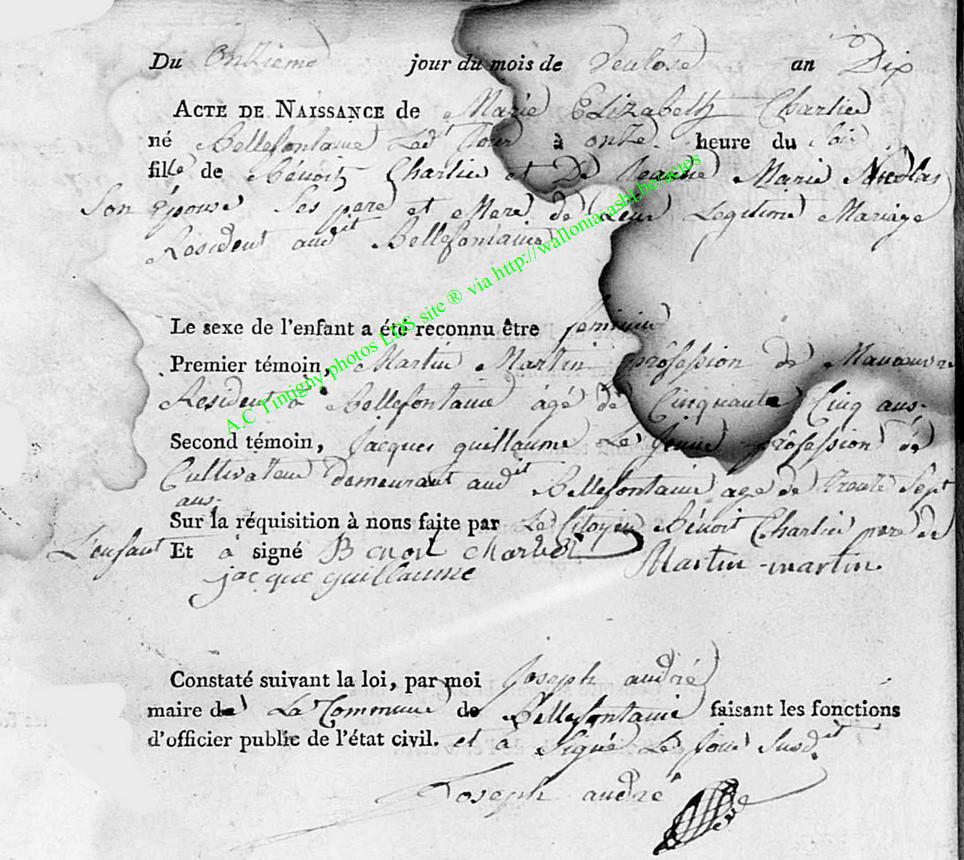 Du Onzieme jour du mois de Ventose an Dix
ACTE DE NAISSANCE de Marie Elizabeth Charlier
né Bellefontaine Led Jour à onze heure du soir
fille de Bénoit Charlier et De Jeanne Marie Nicolas
Son épouse Ses pere et Mere de Leur Legitime Mariage
Resident audit Bellefontaine
Le sexe de l'enfant a été reconnu être feminin
Premier témoin, Martin Martin profession de Manoeuvre
Resident à Bellefontaine âgé de Cinquante Cinq ans.
Second témoin, Jacques guillaume Le Jeune profession de
Cultivateur demeurant audit Bellefontaine agé de trente Sept
ans.
Sur la réquisition à nous faite par Le Citoyen Bénoit Charlier pere de
L'enfant Et à signé Benoit Charlier
jacque guillaume Martin-martin.
Constaté suivant la loi, par moi Joseph andré
maire de La Commune de Bellefontaine faisant les fonctions
d'officier public de l'état civil. et à Signé Le Jour Susdit
Joseph andré
A.C Tintigny photos LDS site ® via http://wallonia.asbl.be/actes